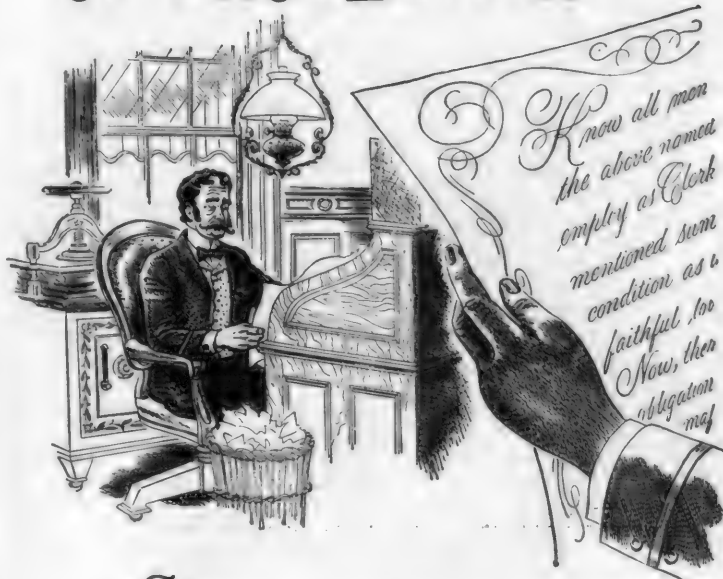 Know all men
the above named
employ as Clerk
mentioned sum
condition as
faithful
Now, then
obligation